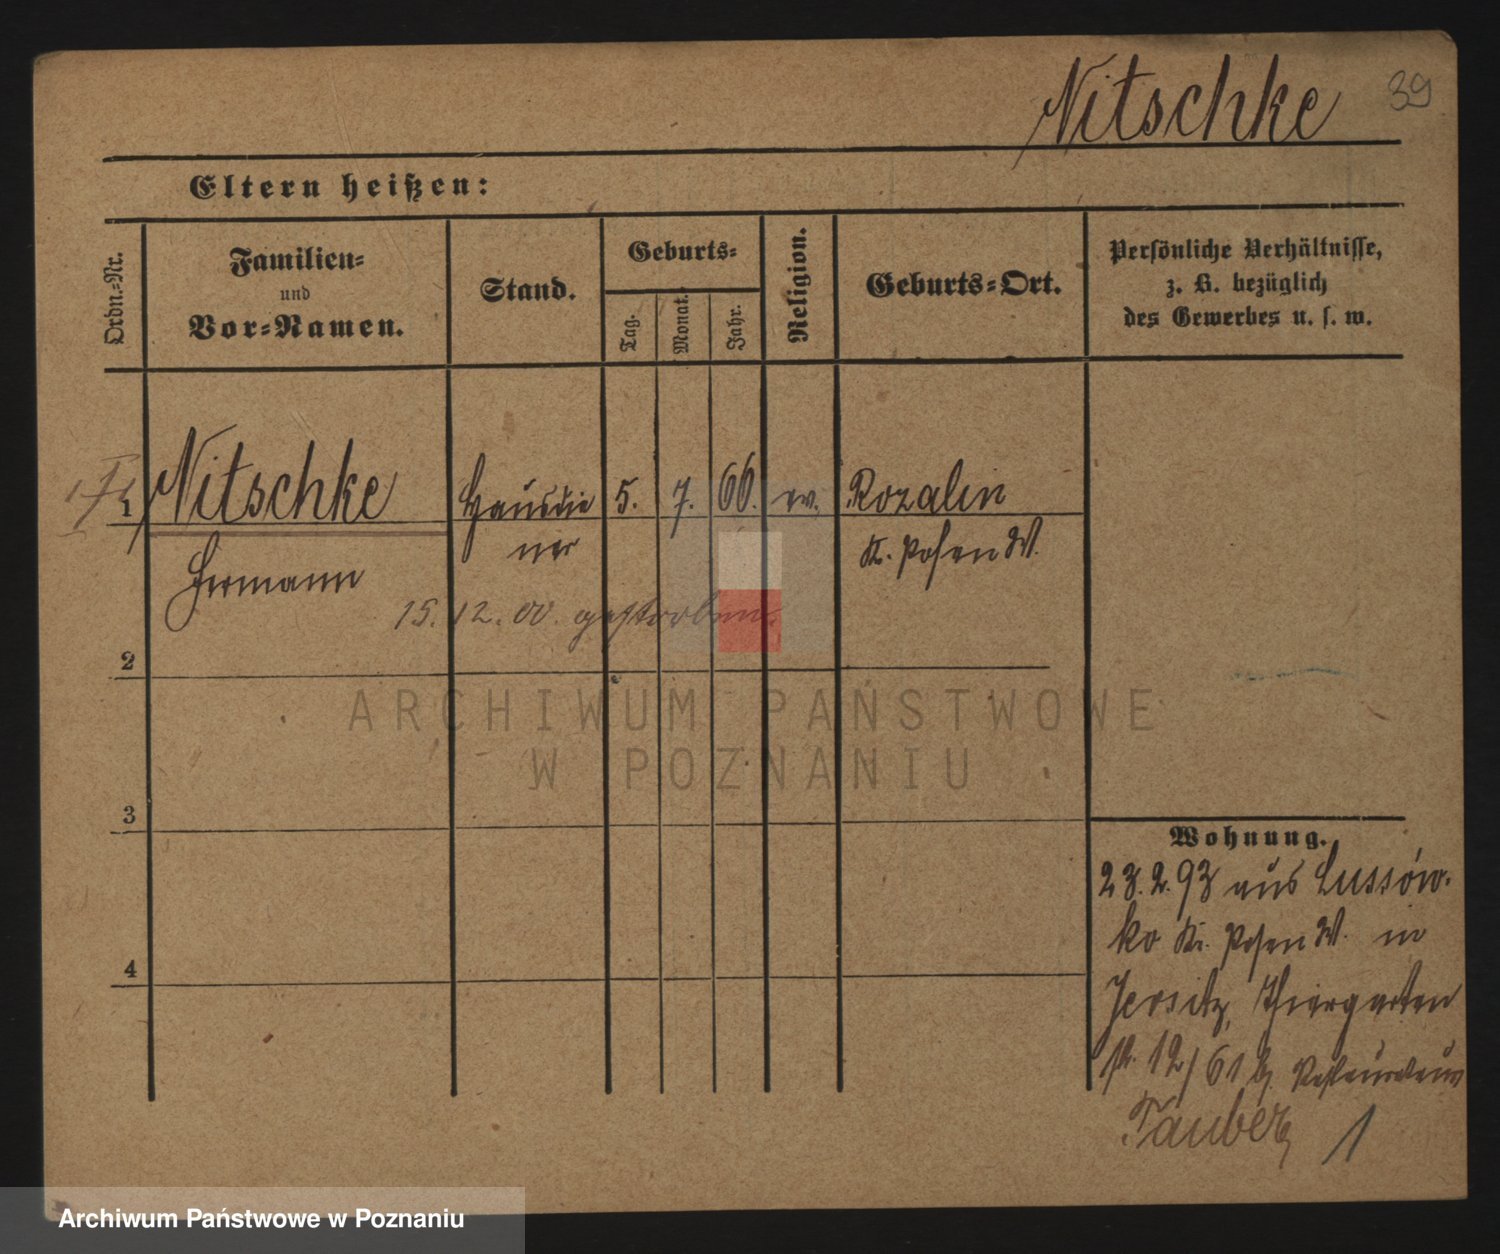 Nitschke 39
Eltern heißen:
Ordn.-Nr.
Familien-
und
Vor-Namen.
Stand.
Geburts-
Tag.
Monat.
Jahr.
Religion.
Geburts-Ort.
Persönliche Verhältnisse,
z. B. bezüglich
des Gewerbes u. s. w.
1 Nitschke Hausdie 5. 7. 66. ev. Rozalin
Hermann ner Kr. Posen W.
15. 12. 00. gestorben.
2
ARCHIWUM PAŃSTWOWE
W POZNANIU
3
Wohnung.
23.2.93 aus Lussów-
ko Kr. Posen W. in
Jersitz, Thiergarten
str. 12/61 b. Restaurateur
Tauber 1
4
Archiwum Państwowe w Poznaniu